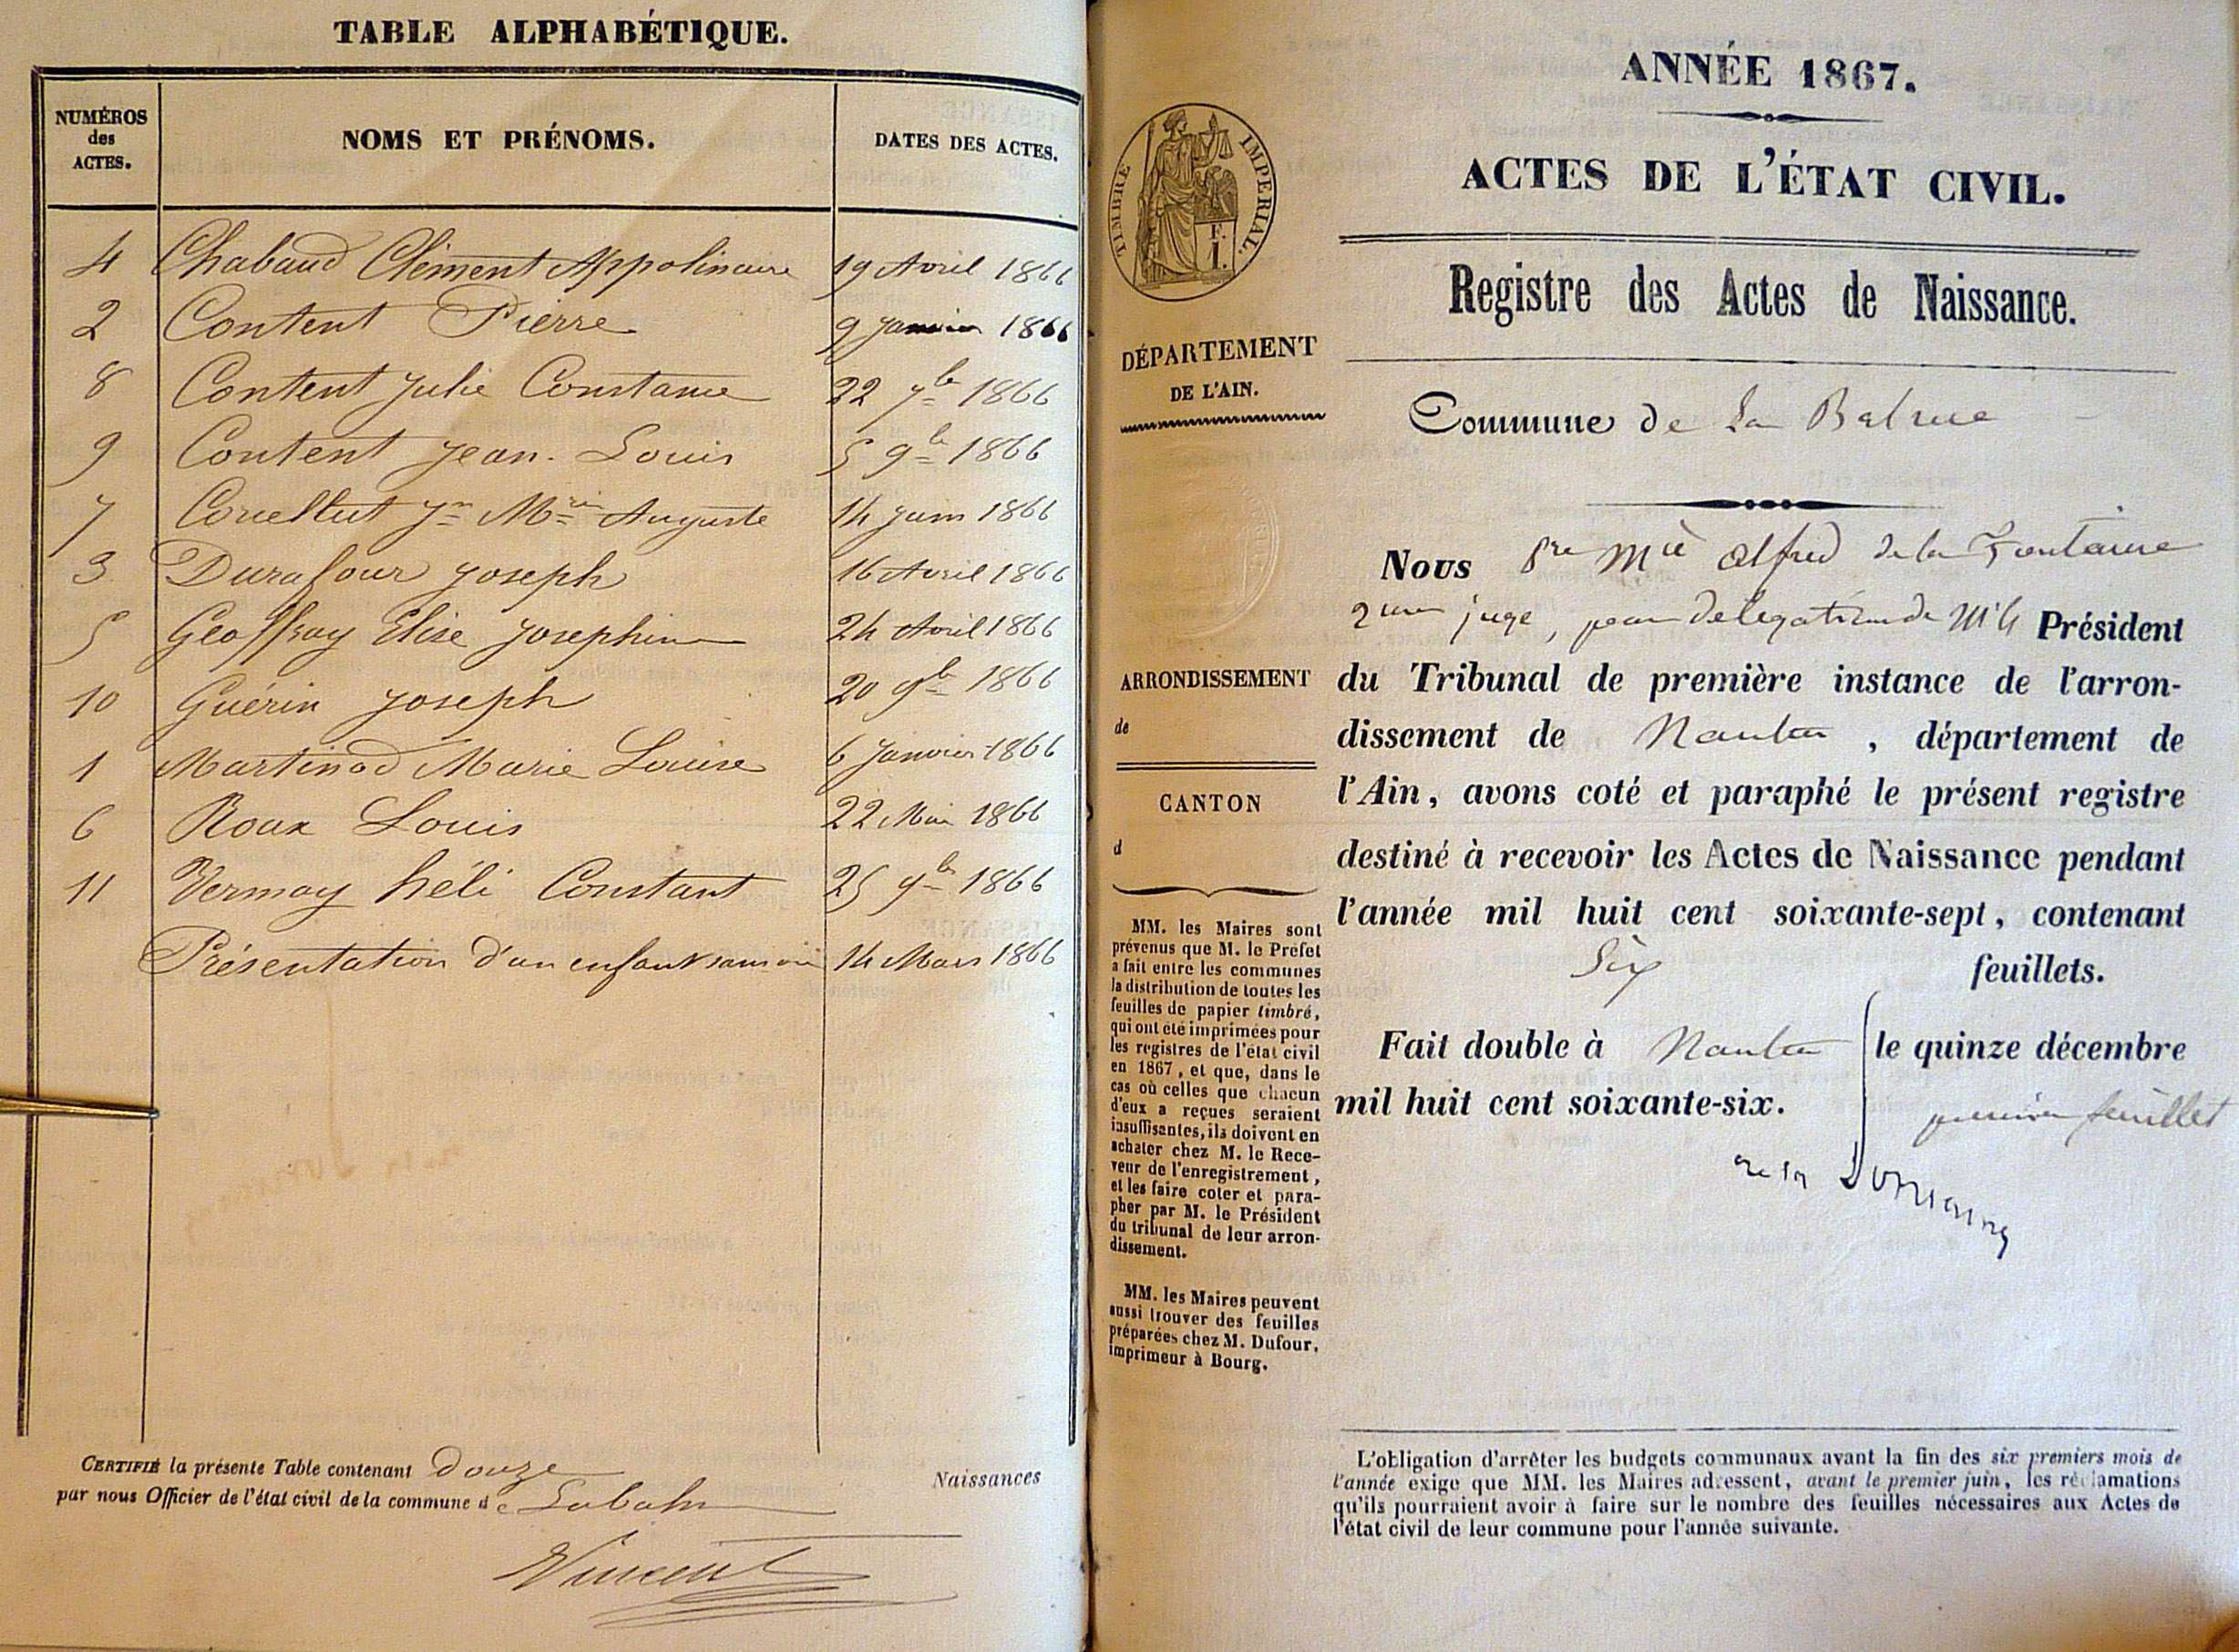 TABLE ALPHABÉTIQUE.
NUMÉROS
des
ACTES.
NOMS ET PRÉNOMS.
DATES DES ACTES.
4 Chabaud Clément Appolinaire 19 Avril 1866
2 Content Pierre 9 Janvier 1866
8 Content Julie Constance 22 7bre 1866
9 Content Jean-Louis 5 9bre 1866
7 Jn Mrie Auguste 14 Juin 1866
3 Durafour Joseph 16 Avril 1866
5 Geoffray Elise Josephine 24 Avril 1866
10 Guérin Joseph 20 9bre 1866
1 Martinod Marie Louise 6 Janvier 1866
6 Roux Louis 22 Mai 1866
11 Vermay héli Constant 25 9bre 1866
Présentation d'un enfant sans vie 14 Mars 1866
CERTIFIÉ la présente Table contenant douze Naissances
par nous Officier de l'état civil de la commune de
Vincent
ANNÉE 1867.
ACTES DE L'ÉTAT CIVIL.
TIMBRE IMPÉRIAL.
F.
I.
Registre des Actes de Naissance.
DÉPARTEMENT
DE L'AIN.
Commune de La Balme
Nous Pre Mie Alfred de la Fontaine
juge, par délégation de Mr le Président
du Tribunal de première instance de l'arron-
dissement de Nantua, département de
l'Ain, avons coté et paraphé le présent registre
destiné à recevoir les Actes de Naissance pendant
l'année mil huit cent soixante-sept, contenant
Six feuillets.
Fait double à Nantua le quinze décembre
mil huit cent soixante-six.
premier feuillet
de la Fontaine
ARRONDISSEMENT
de
CANTON
d
MM. les Maires sont
prévenus que M. le Préfet
a fait entre les communes
la distribution de toutes les
feuilles de papier timbré,
qui ont été imprimées pour
les registres de l'état civil
en 1867, et que, dans le
cas où celles que chacun
d'eux a reçues seraient
insuffisantes, ils doivent en
acheter chez M. le Rece-
veur de l'enregistrement,
et les faire coter et para-
pher par M. le Président
du tribunal de leur arron-
dissement.
MM. les Maires peuvent
aussi trouver des feuilles
préparées chez M. Dufour,
imprimeur à Bourg.
L'obligation d'arrêter les budgets communaux avant la fin des six premiers mois de
l'année exige que MM. les Maires adressent, avant le premier juin, les réclamations
qu'ils pourraient avoir à faire sur le nombre des feuilles nécessaires aux Actes de
l'état civil de leur commune pour l'année suivante.